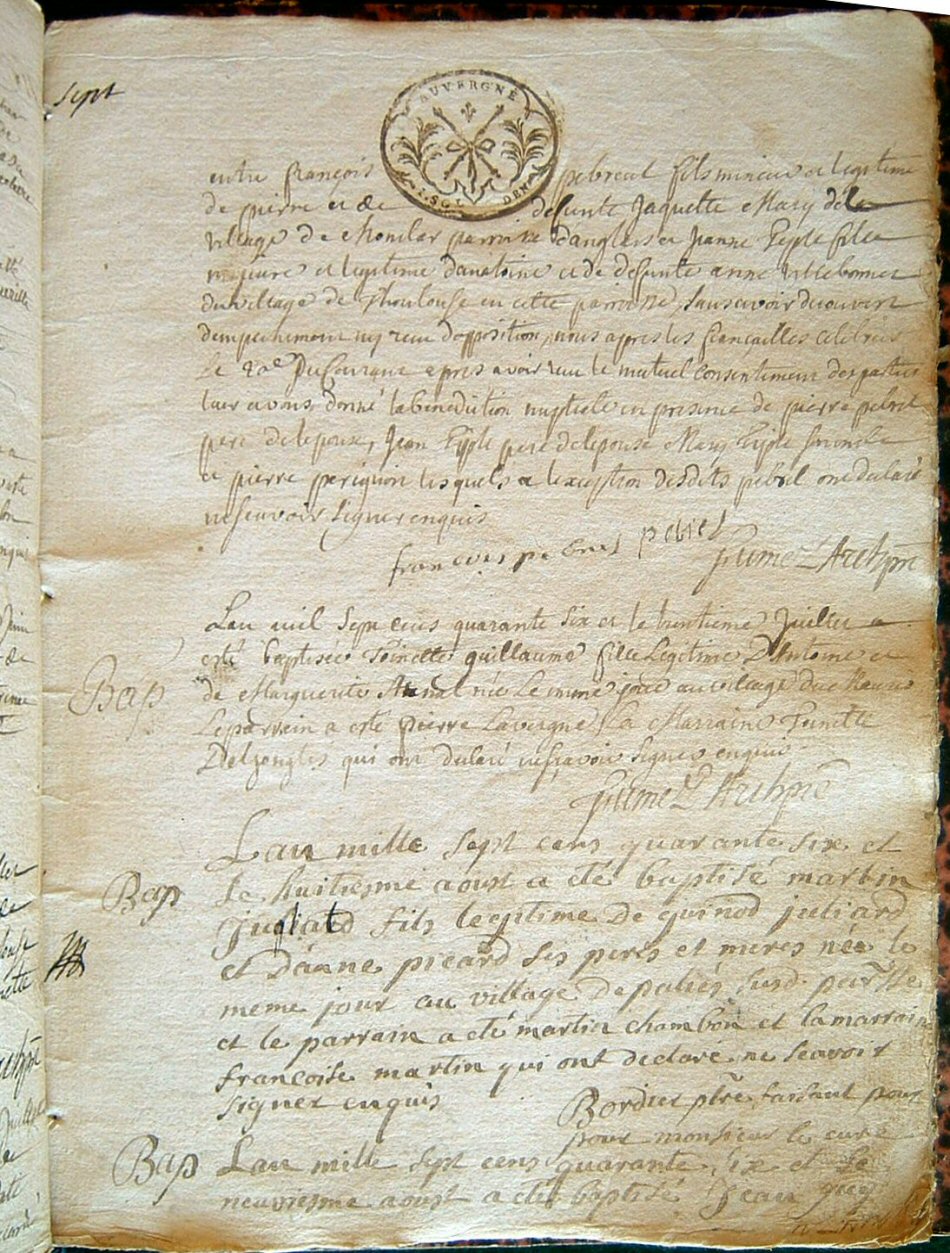 sept
AUVERGNE
1. SOL DEN
entre françois pebreul fils mineur et legitime
de pierre et de defunte Jaquette Mary de le
village de Monclar parroisse danglars et Jeanne fille
majeure et legitime danthoine et de defunte anne villebonnet
du village de Thoulouse en cette parroisse, sans avoir decouvert
dempechement ny reçu dopposition, nous apres les fiançailles celebrées
le 20e Du Courant apres avoir reçu le mutuel consentiment des parties
leur avons donné la benediction nuptiale en presence de pierre pebrel
pere de lepoux, Jean pere de lepouse Mary
et pierre perignon lesquels a lexception desdits pebrel ont declaré
ne scavoir signer enquis
françois pebrel pebrel
Lan mil sept cens quarante six et le trentieme Juillet a
esté baptisée Toinette guillaume fille Legitime D'Antoine et
de Marguerite née Le meme jour au village du
Le parrein a esté pierre Lavergne, La Marraine Toinette
Delzongles qui ont declaré ne sçavoir signer enquis
Bap
Lan mille sept cens quarante six et
Bap le huitiesme aoust a été baptisé martin
juliard fils legitime de guinod juliard
et Danne picard ses peres et meres née le
meme jour au village De paliés susd. par.sse
et le parrain a été martin chambon et la marraine
françoise martin qui ont declaré ne scavoir
signer enquis
Bordier ptre faisant pour
pour monsieur le curé
Bap Lan mille sept cens quarante six et le
neuviesme aoust a été baptisé Jean guy